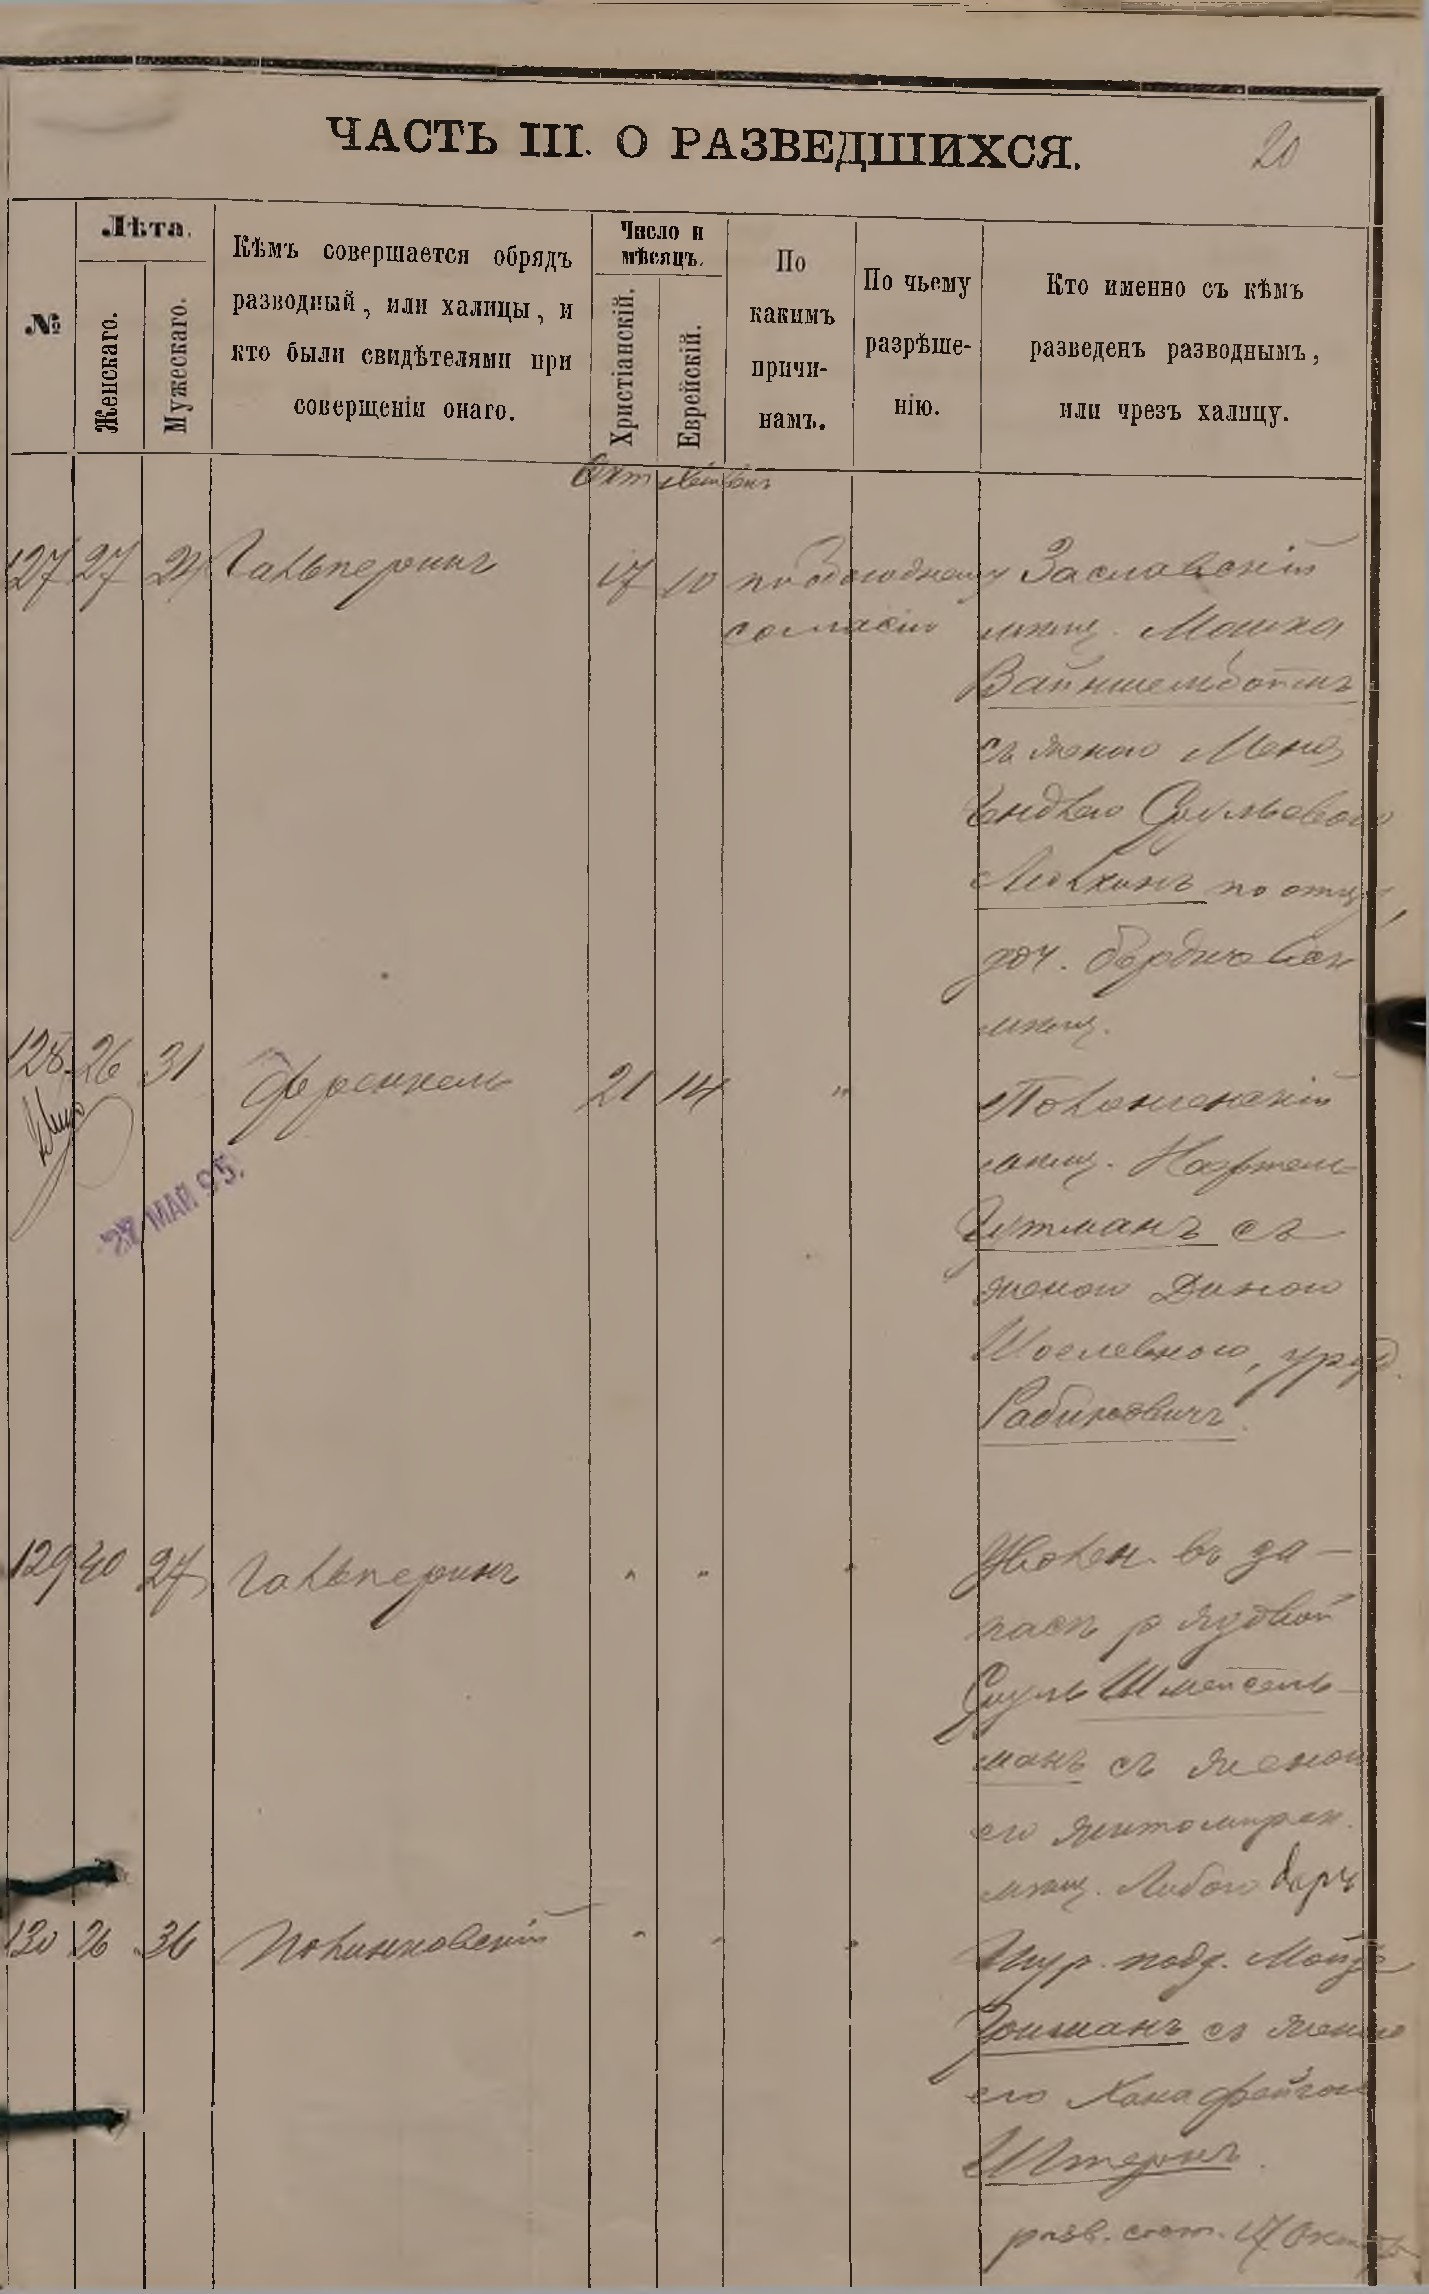 ЧАСТЬ III. О РАЗВЕДШИХСЯ.
20
№
Лѣта.
Женскаго.
Мужескаго.
Кѣмъ совершается обрядъ
разводный, или халицы, и
кто были свидѣтелями при
совершеніи онаго.
Число и
мѣсяцъ.
Христіанскій.
Еврейскій.
По
какимъ
причи-
намъ.
По чьему
разрѣше-
нію.
Кто именно съ кѣмъ
разведенъ разводнымъ,
или чрезъ халицу.
Окт
127 27 Гальперинъ 17 10 по обоюдному
согласію
Заславскій
мѣщ. Мошко
Вайншельбоймъ
съ женою
по отцу,
доч. бердичевск
мѣщ.
128 26 31 Френкель 21 14 "
мѣщ.
Гутманъ съ
женою Диною
Іоселевною, урожд.
Рабиновичъ.
27 МАЙ 95.
129 40 27 Гальперинъ " " "
Уволен. въ за-
пасъ рядовой
Сруль Шмейсель-
манъ съ женою
его житомирск.
мѣщ. Либою
130 26 36 Полинковскій " " "
Тур. подд.
Гойманъ съ женою
его Хана Фейгою
Штернъ.
разв. сост. 17 Октяб